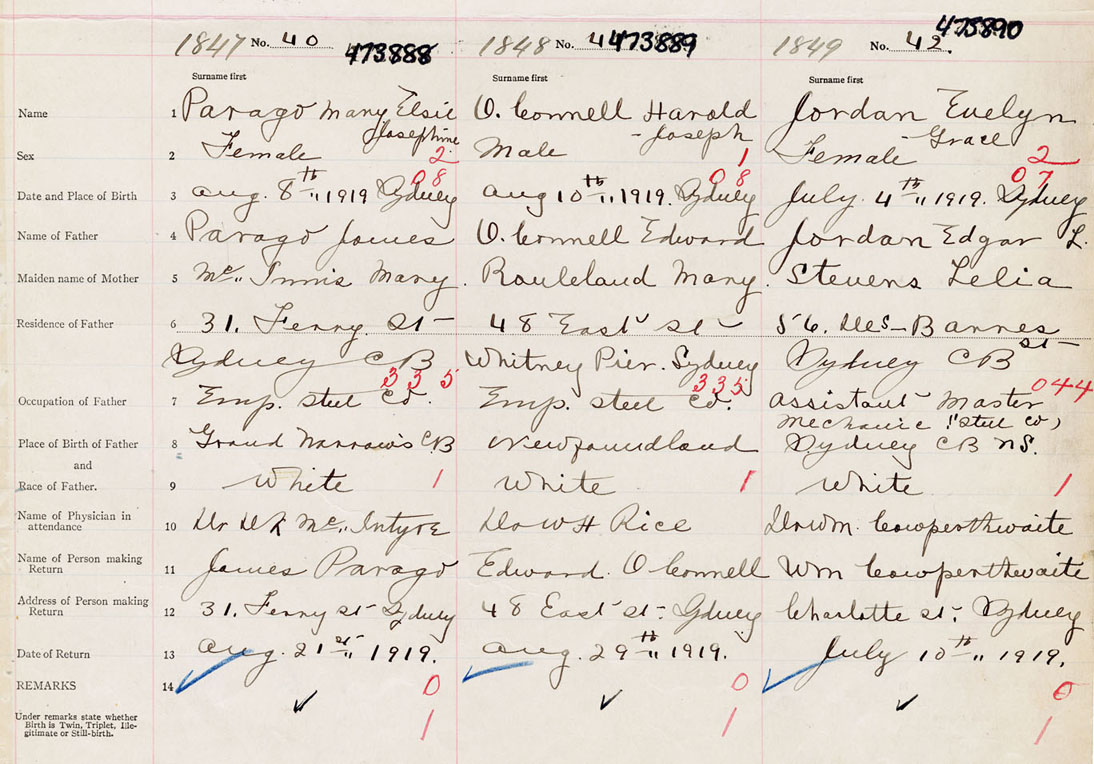 473890
1847 No. 40 473888 1848 No. 4473889 1849 No. 42.
Surname first Surname first Surname first
Name 1 Parago Mary Elsie O. Connell Harold Jordan Evelyn
Josephine - Joseph - Grace
Sex 2 Female 2 Male 1 Female 2
08 08 07
Date and Place of Birth 3 Aug. 8th " 1919 Sydney Aug 10th " 1919. Sydney July. 4th " 1919. Sydney
Name of Father 4 Parago James O. Connell Edward Jordan Edgar L.
Maiden name of Mother 5 Mc " Innis Mary. Rouleland Mary. Stevens Lelia
Residence of Father 6 31. Ferry. St - 48 East St - 56. Des-Barres
St -
Sydney CB Whitney Pier. Sydney Sydney CB
335 335 044
Occupation of Father 7 Emp. Steel Co. Emp. Steel Co. Assistant Master
Mechanic (Steel Co)
Place of Birth of Father 8 Grand Narrows CB Newfoundland Sydney CB NS.
and
Race of Father. 9 White 1 White 1 White 1
Name of Physician in
attendance 10 Dr D R Mc " Intyre Dr W H Rice Dr Wm. Cowperthwaite
Name of Person making
Return 11 James Parago Edward. O Connell Wm Cowperthwaite
Address of Person making
Return 12 31. Ferry St - Sydney 48 East St - Sydney Charlotte St, Sydney
Date of Return 13 Aug. 21st " 1919. Aug. 29th " 1919. July 10th " 1919.
REMARKS 14 0 0 0
Under remarks state whether
Birth is Twin, Triplet, Ille-
gitimate or Still-birth. 1 1 1